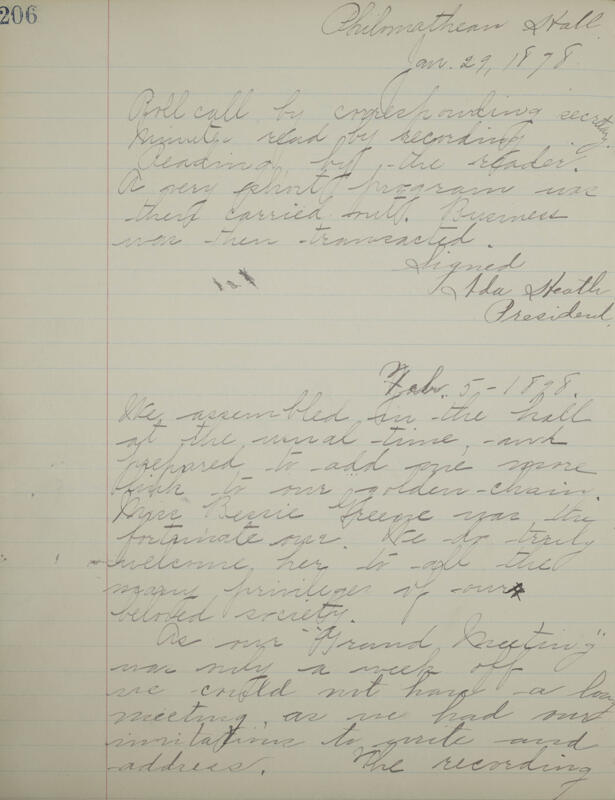 206
Philomathean Hall
Jan. 29, 1898
Roll call by corresponding secretary.
Minutes read by recording.
Reading by the reader.
A very short program was
then carried out. Business
was then transacted.
Signed
Ada Heath
President.
Feb. 5 - 1898.
We assembled in the hall
at the usual time, and
prepared to add one more
link to our golden chain.
Miss Bessie Greene was the
fortunate one. We do truly
welcome her to all the
many privileges of our
beloved society.
As our "Grand Meeting"
was only a week off
we could not have a long
meeting, as we had our
invitations to write and
address. The recording